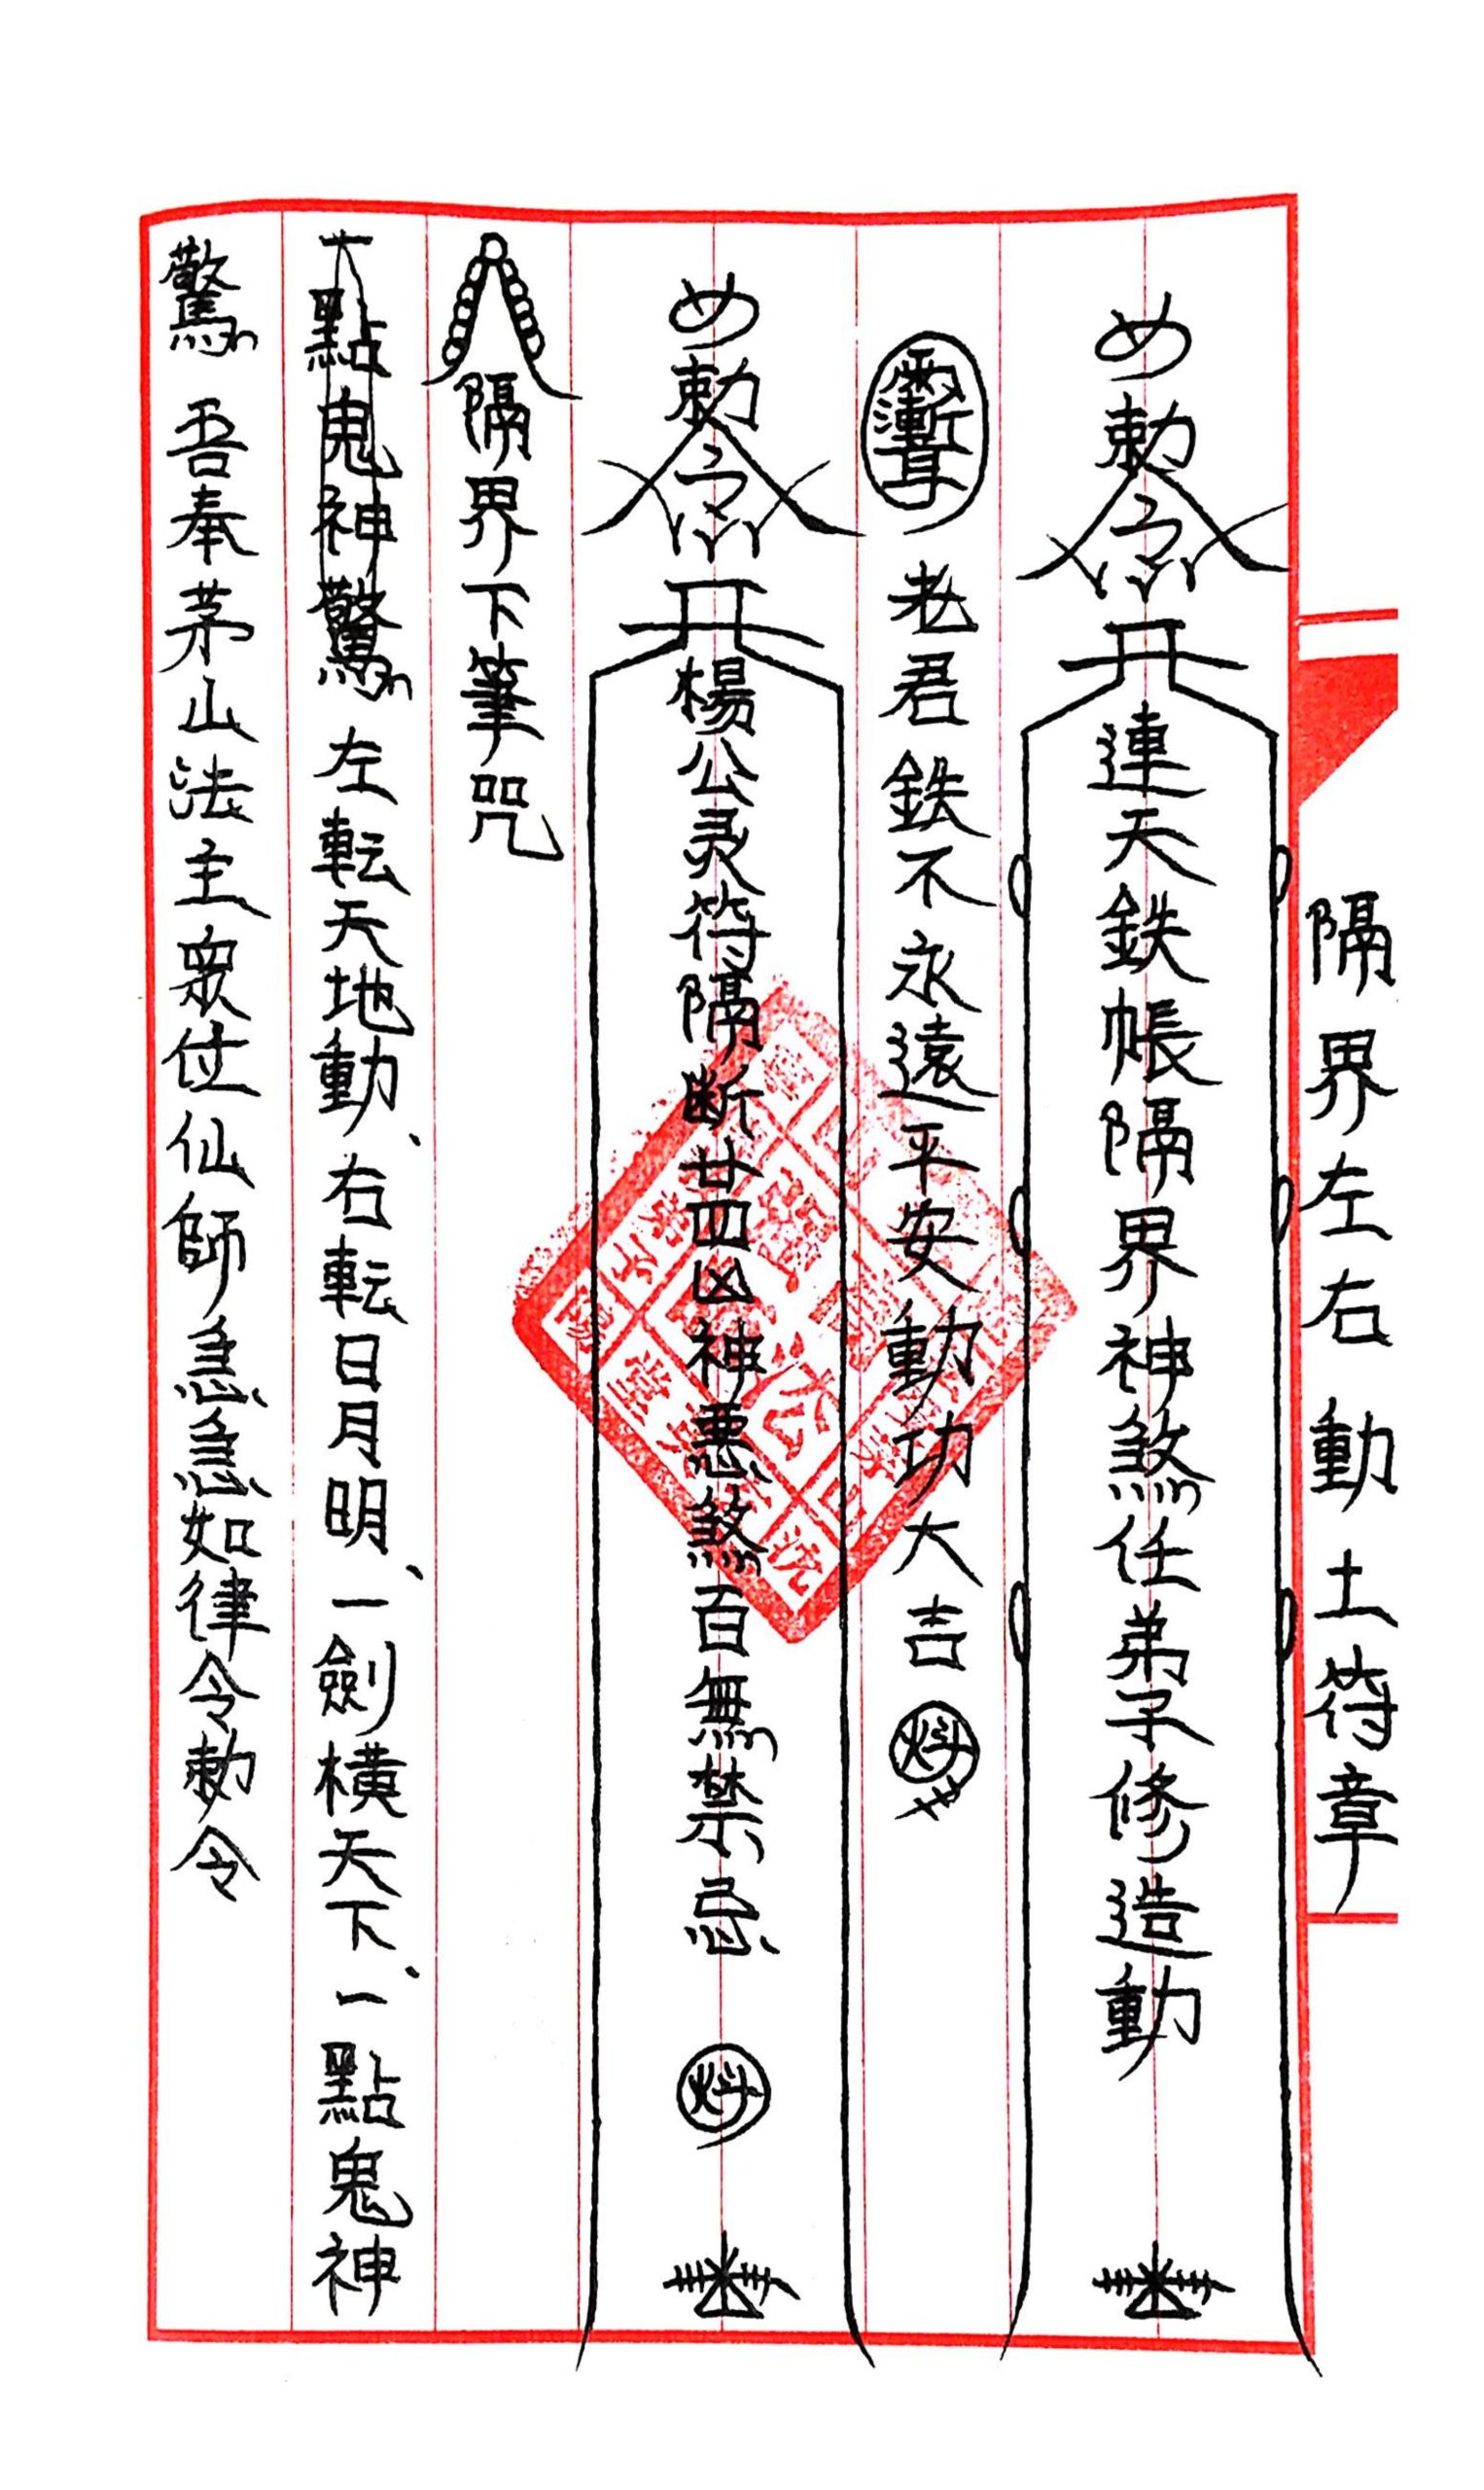 隔界左右動土符章
勅令連天鉄帳隔界神煞任弟子修造動
老君鉄不永遠平安動功大吉
勅令楊公灵符隔断廿四凶神悪煞百無禁忌
隔界下筆咒
大點鬼神驚左転天地動、右転日月明、一劍橫天下、一點鬼神
驚 吾奉茅山法主眾位仙師急急如律令勅令